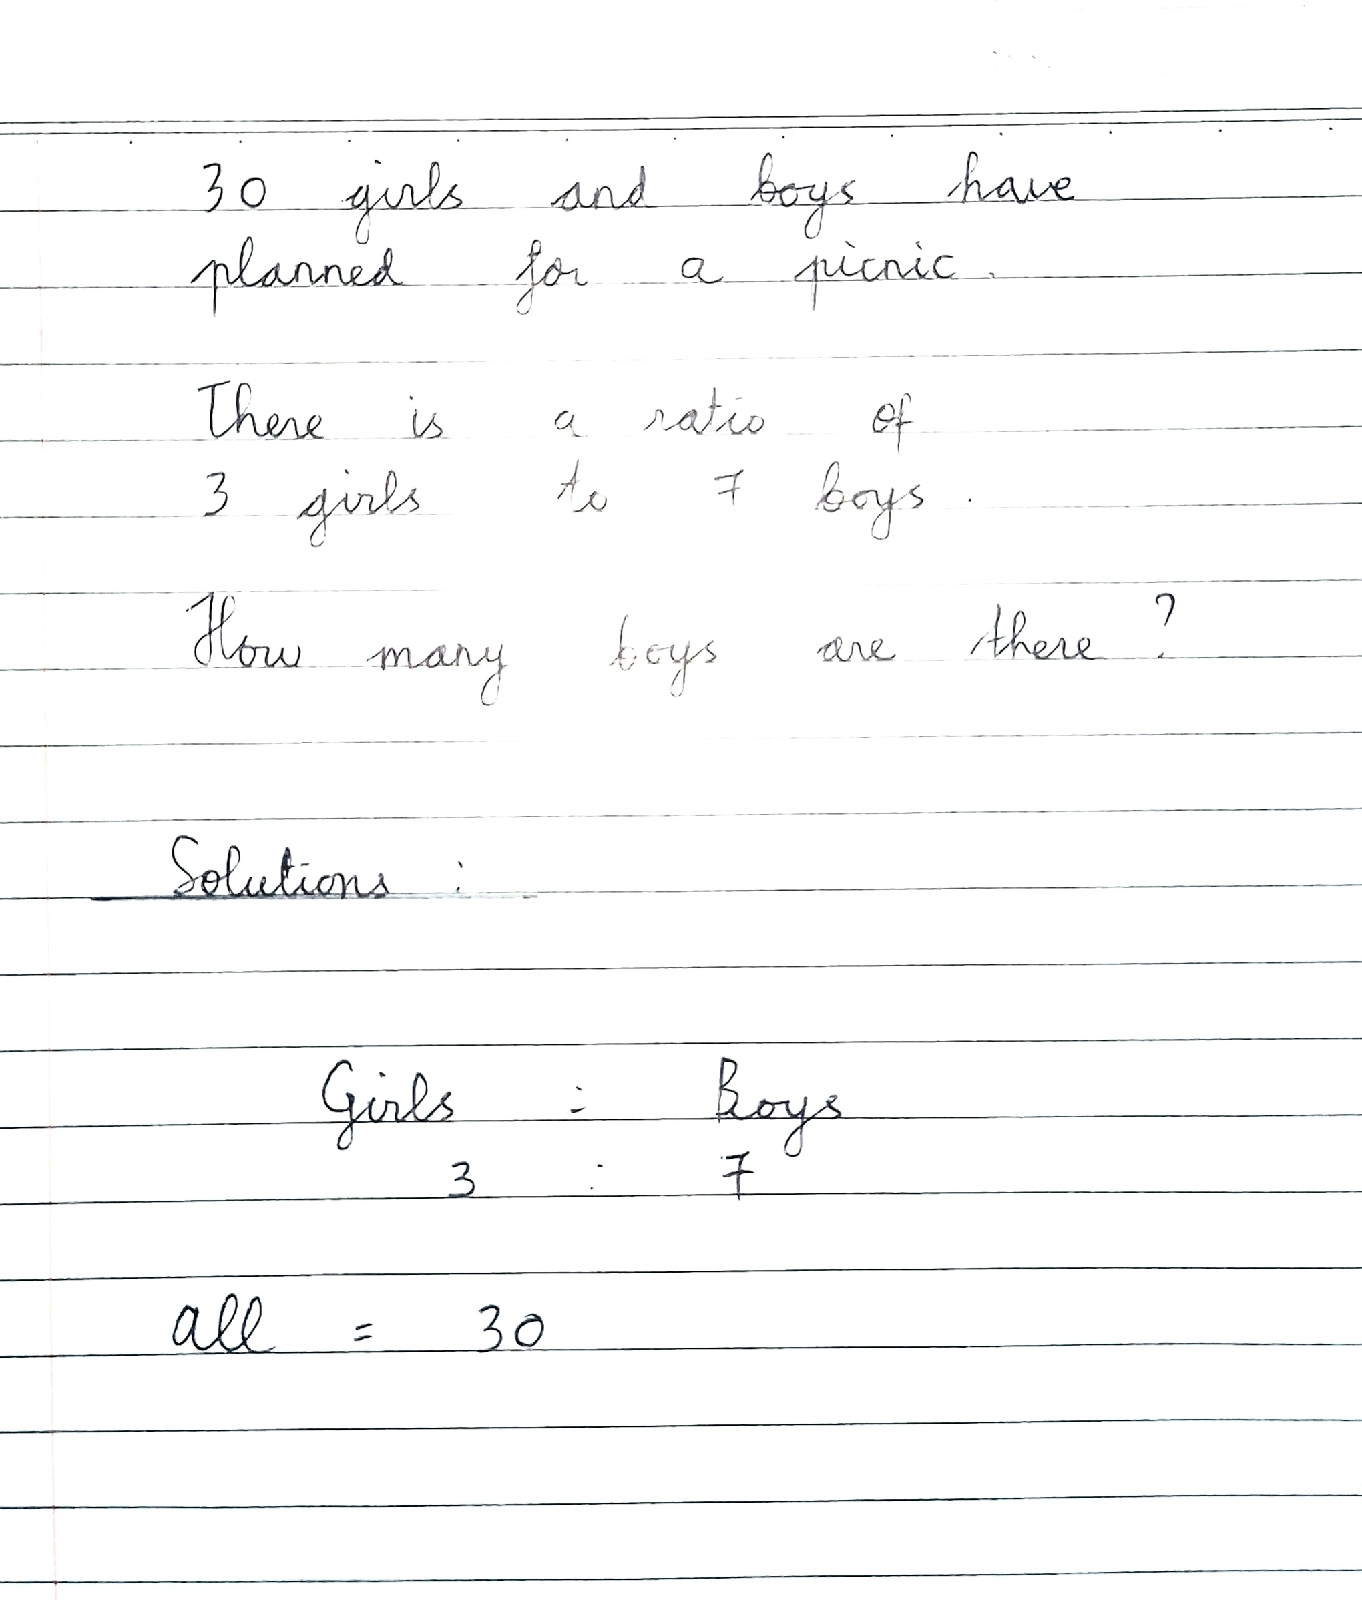 30 girls and boys have
planned for a picnic.
There is a ratio of
3 girls to 7 boys.
How many boys are there?
Solutions :
Girls : Boys
3 : 7
all = 30